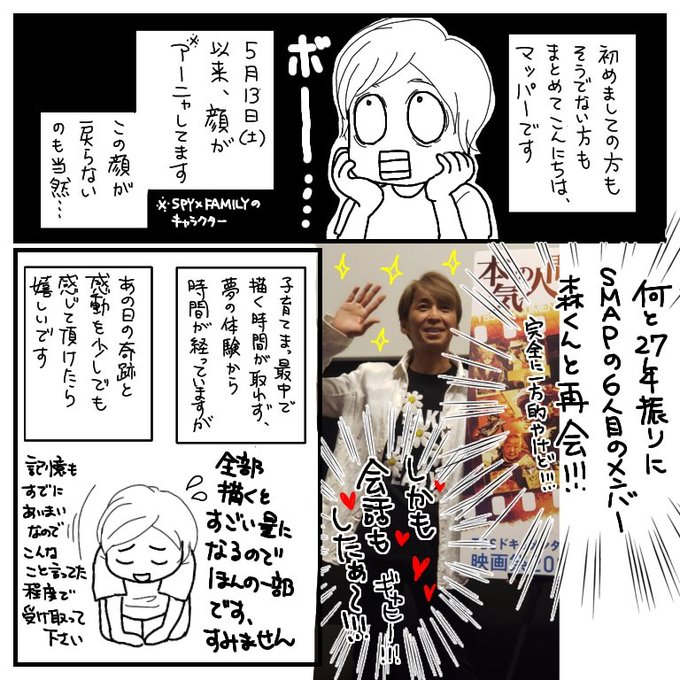 初めましての方も
そうでない方も
まとめてこんにちは、
マッパーです
ボーー…
5月13日(土)
以来、顔が
アーニャしてます
※SPY×FAMILYの
キャラクター
この顔が
戻らない
のも当然…
何と27年振りに
SMAPの6人目のメンバー
森くんと再会!!!
完全に一方的やけど!!!
本気の人間
しかも
会話も
したぁ〜!!!
ギャヒー!!!
TBSドキュメンタリー
映画祭20
子育てまっ最中で
描く時間が取れず、
夢の体験から
時間が経っていますが
あの日の奇跡と
感動を少しでも
感じて頂けたら
嬉しいです
全部
描くと
すごい量に
なるので
ほんの一部
です、
すみません
記憶も
すでに
あいまい
なので
こんな
こと言ってた
程度で
受け取って
下さい